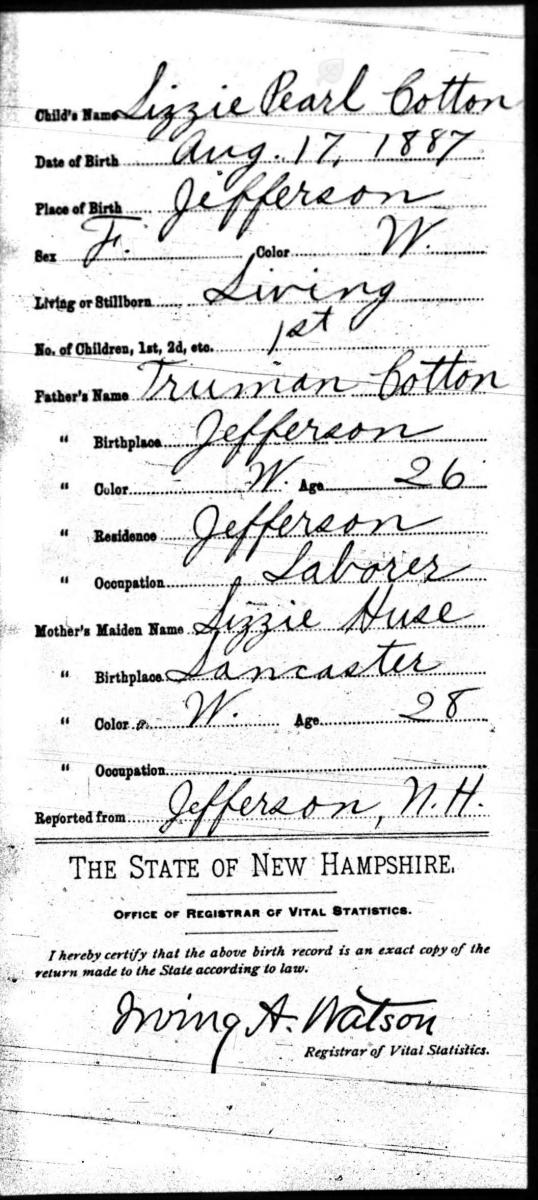 Child's Name Lizzie Pearl Cotton
Date of Birth Aug. 17, 1887
Place of Birth Jefferson
Sex F. Color W.
Living or Stillborn Living
No. of Children, 1st, 2d, etc. 1st
Father's Name Truman Cotton
" Birthplace Jefferson
" Color W. Age 26
" Residence Jefferson
" Occupation Laborer
Mother's Maiden Name Lizzie Huse
" Birthplace Lancaster
" Color W. Age 28
" Occupation
Reported from Jefferson, N.H.
THE STATE OF NEW HAMPSHIRE.
OFFICE OF REGISTRAR OF VITAL STATISTICS.
I hereby certify that the above birth record is an exact copy of the
return made to the State according to law.
Irving A. Watson
Registrar of Vital Statistics.